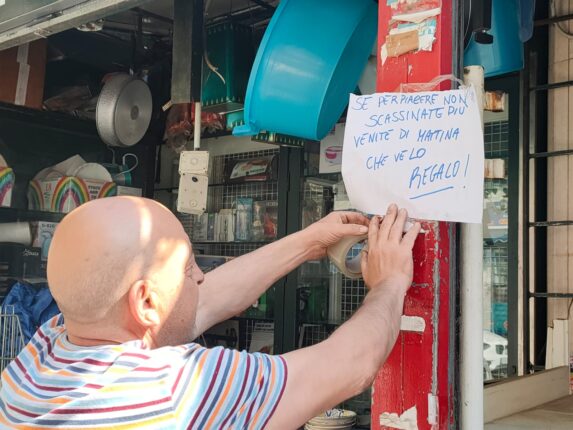 SE PER PIACERE NON
SCASSINATE PIÙ
VENITE DI MATTINA
CHE VE LO
REGALO!